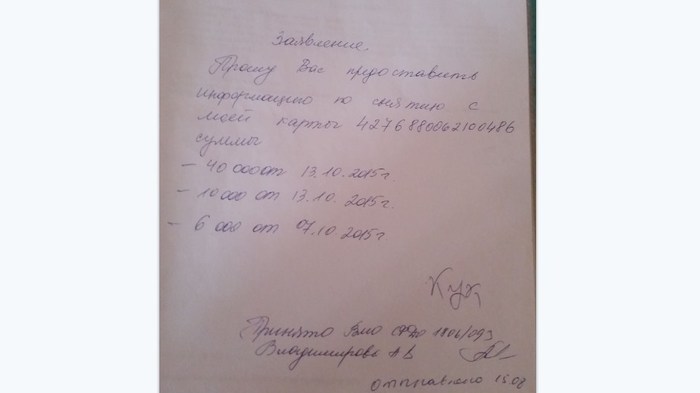 Заявление.
Прошу Вас предоставить
информацию по снятию с
моей карты 4276880062100486
суммы
– 40 000 от 13.10.2015г.
– 10000 от 13.10.2015г.
– 6 000 от 07.10 2015г
Принято 1806/093
Владимирова АВ
отправлено 15.08